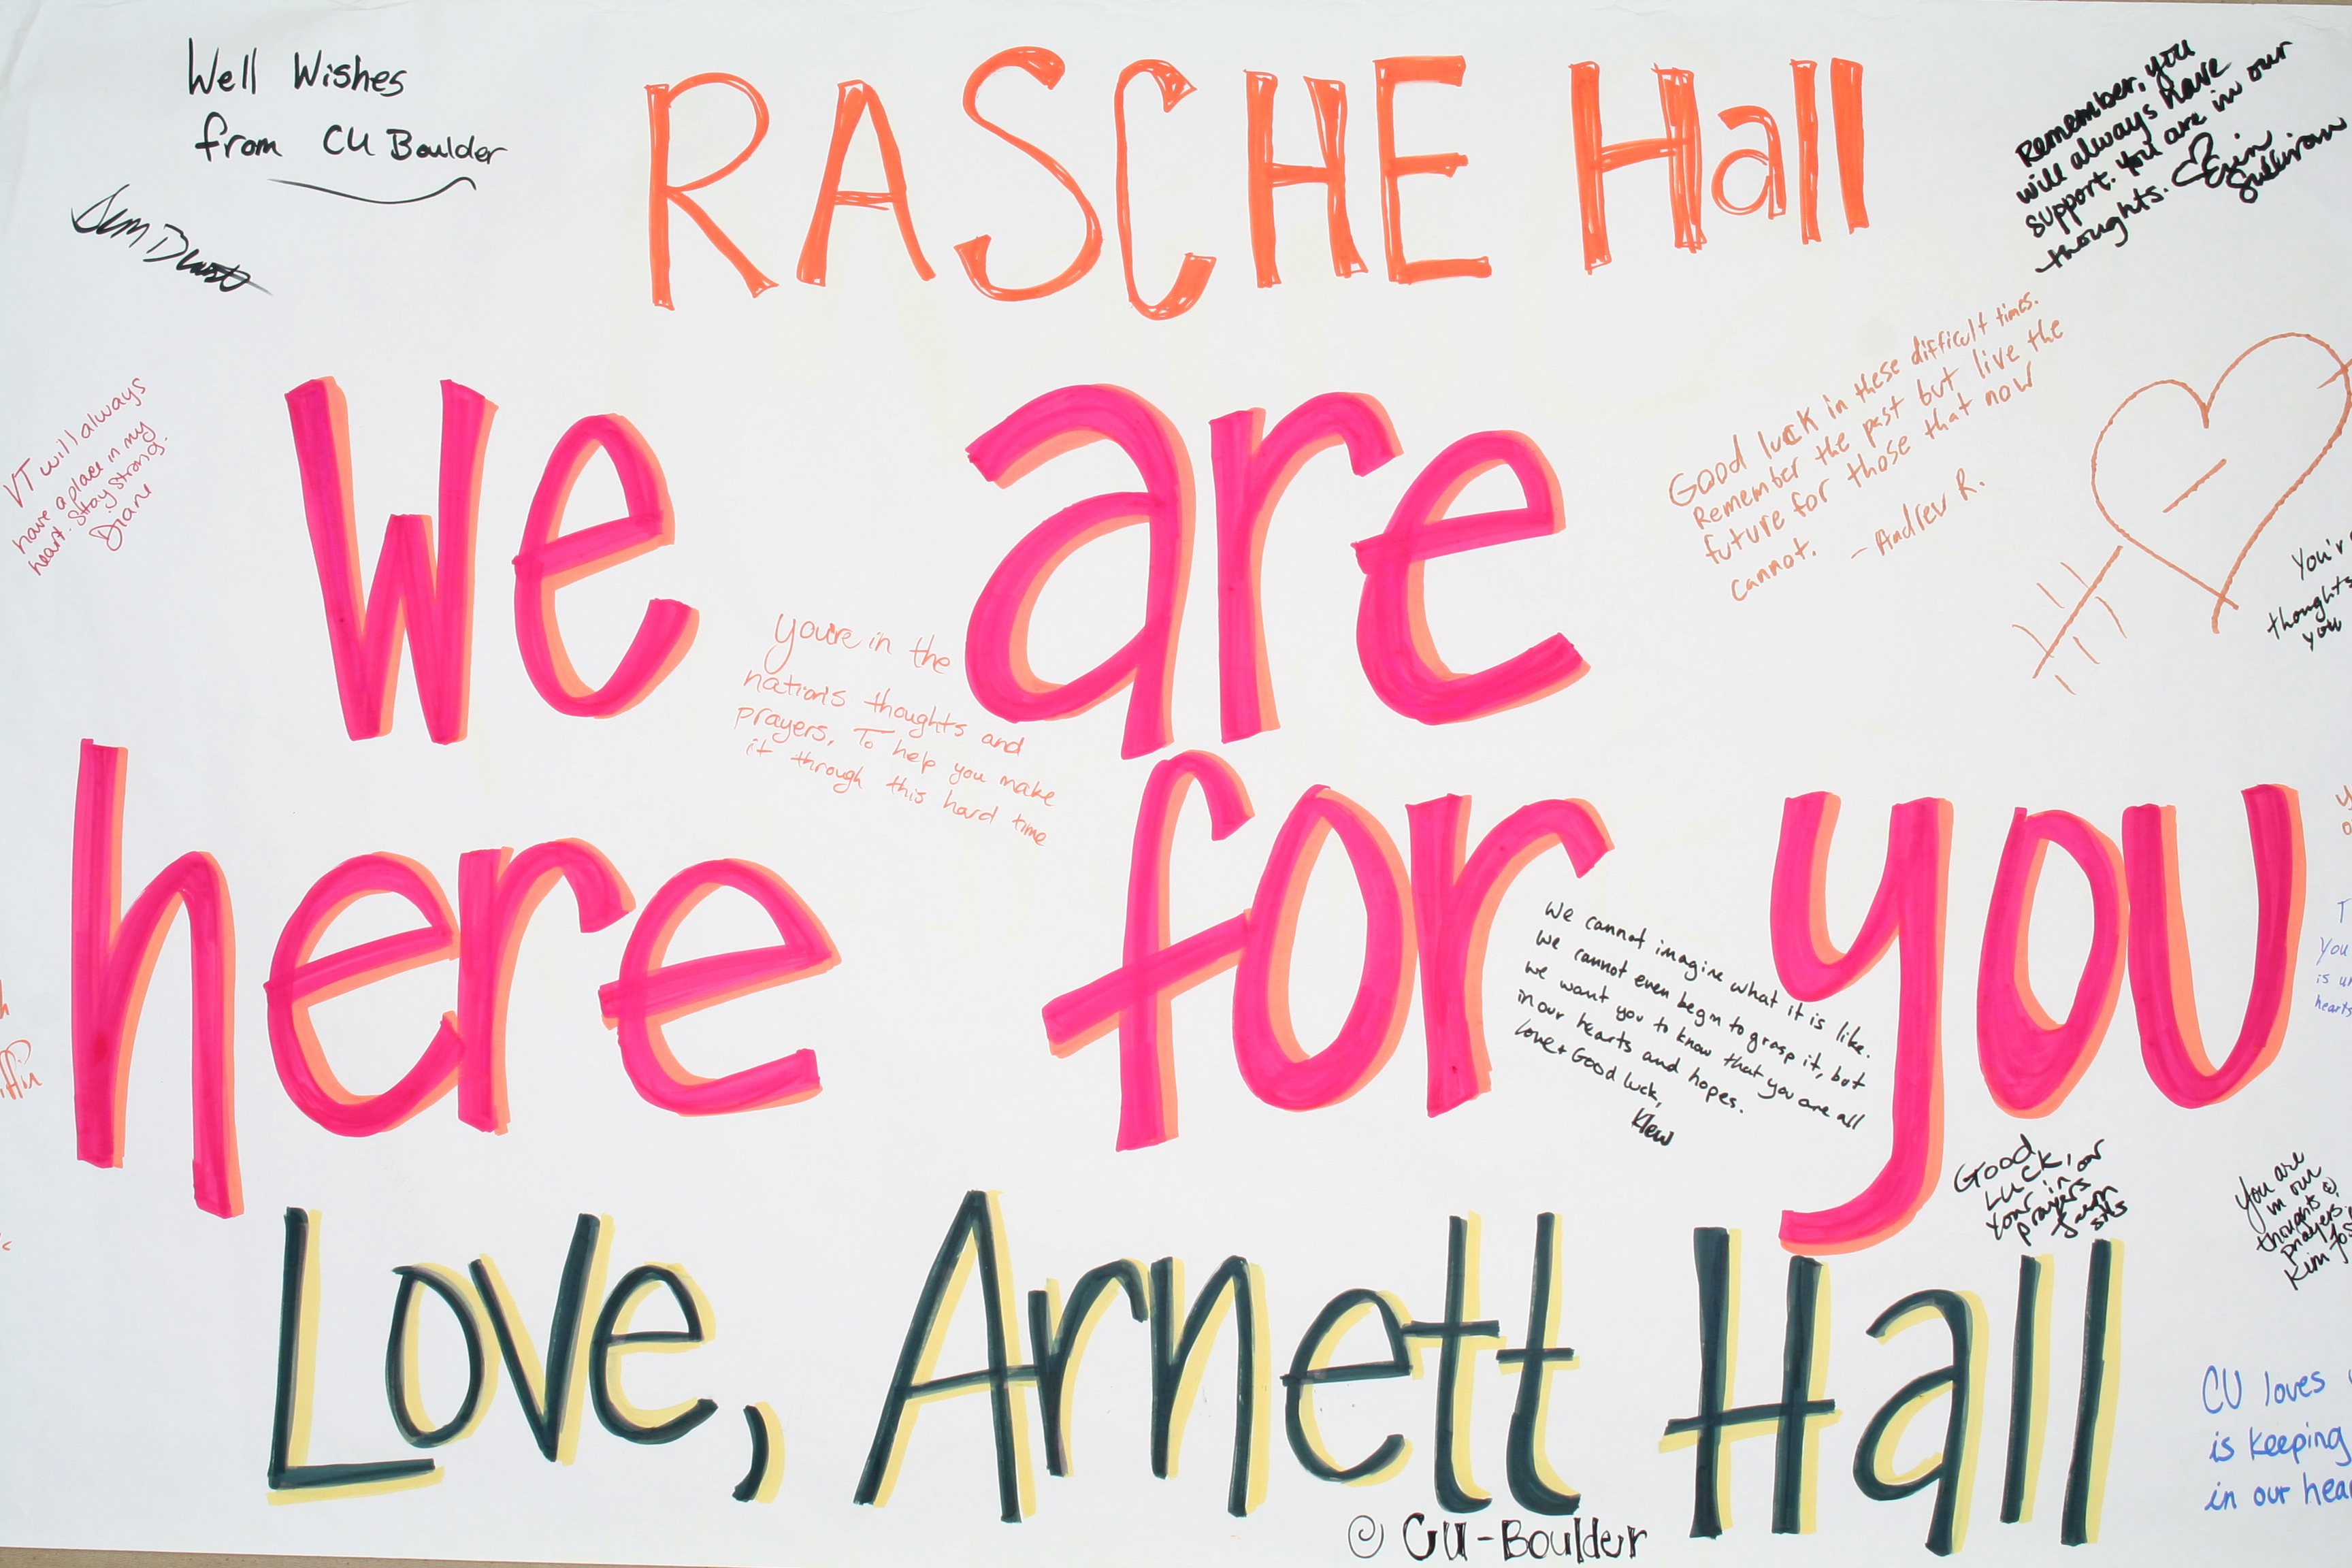 Well Wishes
from CU Boulder
RASCHE Hall
Remember, you
will always have
support. You are in our
thoughts. Erin
Sullivan
VT will always
have a place in my
heart. Stay strong.
Diane
we are
Good luck in these difficult times.
Remember the past but live the
future for those that now
cannot. - Andrew R.
You're in the
nation's thoughts and
prayers, To help you make
it through this hard time
thoughts
you
here for you
We cannot imagine what it is like.
We cannot even begin to grasp it, but
we want you to know that you are all
in our hearts and hopes.
Love + Good luck,
Klew
Good
Luck,
Your in our
prayers
You are
in our
thoughts &
prayers.
Kim
You
hearts
Love, Arnett Hall
@ CU-Boulder
CU loves
is keeping
in our